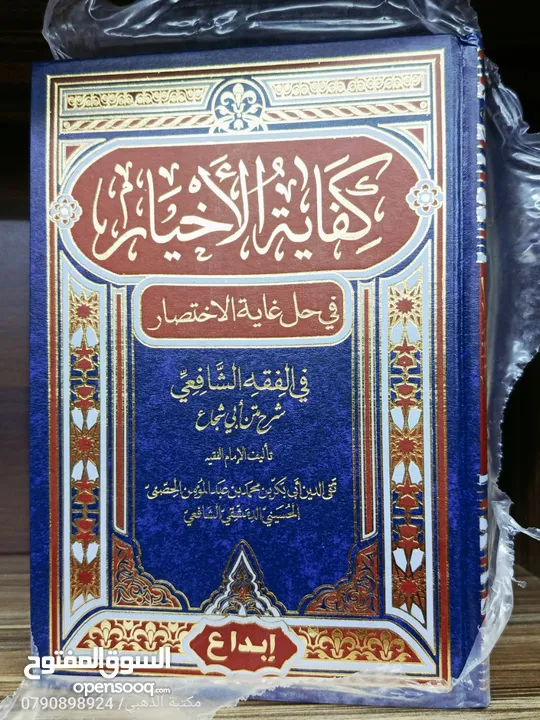 كفاية الأخيار
في حل غاية الاختصار
في الفقه الشافعي
شرح متن أبي شجاع
تأليف الإمام الفقيه
تقي الدين أبي بكر بن محمد بن عبد المؤمن الحصني
الحسيني الدمشقي الشافعي
إبداع
السوق المفتوح
opensooq.com
مكتبة الذهبي / 0790898924